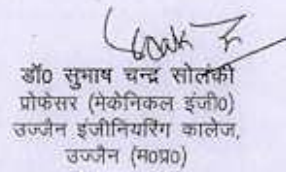 डॉ0 सुभाष चन्द्र सोलंकी
प्रोफेसर (मेकेनिकल इंजी0)
उज्जैन इंजीनियरिंग कालेज,
उज्जैन (म0प्र0)